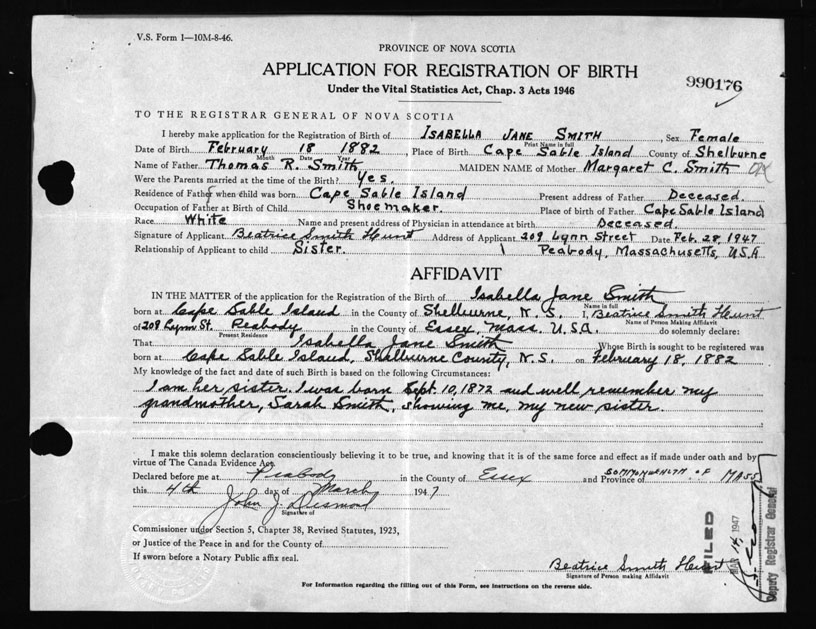 V.S. Form 1—10M-8-46.
PROVINCE OF NOVA SCOTIA
APPLICATION FOR REGISTRATION OF BIRTH
990176
Under the Vital Statistics Act, Chap. 3 Acts 1946
TO THE REGISTRAR GENERAL OF NOVA SCOTIA
I hereby make application for the Registration of Birth of ISABELLA JANE SMITH, Sex Female
Print Name in full
Date of Birth February 18 1882, Place of Birth Cape Sable Island County of Shelburne
Month Date Year
Name of Father Thomas R. Smith, MAIDEN NAME of Mother Margaret C. Smith
Were the Parents married at the time of the Birth? Yes.
Residence of Father when child was born Cape Sable Island Present address of Father Deceased.
Occupation of Father at Birth of Child Shoemaker. Place of birth of Father Cape Sable Island
Race White Name and present address of Physician in attendance at birth Deceased.
Signature of Applicant Beatrice Smith Hunt Address of Applicant 209 Lynn Street Date Feb. 28, 1947
Relationship of Applicant to child Sister. Peabody, Massachusetts, USA
AFFIDAVIT
IN THE MATTER of the application for the Registration of the Birth of Isabella Jane Smith
Name in full
born at Cape Sable Island in the County of Shelburne, N.S. I, Beatrice Smith Hunt
Name of Person Making Affidavit
of 209 Lynn St. Peabody in the County of Essex, Mass. U.S.A. do solemnly declare:
Present Residence
That Isabella Jane Smith Whose Birth is sought to be registered was
born at Cape Sable Island, Shelburne County, N.S. on February 18, 1882
My knowledge of the fact and date of such Birth is based on the following Circumstances:
I am her sister. I was born Sept. 10, 1872 and well remember my
grandmother, Sarah Smith, showing me, my new sister.
I make this solemn declaration conscientiously believing it to be true, and knowing that it is of the same force and effect as if made under oath and by
virtue of The Canada Evidence Act.
Declared before me at Peabody in the County of Essex and Province of COMMONWEALTH OF MASS
this 4th day of March 1947
John J. Desmond
Signature of
Commissioner under Section 5, Chapter 38, Revised Statutes, 1923,
or Justice of the Peace in and for the County of
If sworn before a Notary Public affix seal.
FILED
MAR 14 1947
Deputy Registrar General
Beatrice Smith Hunt
Signature of Person making Affidavit
For Information regarding the filling out of this Form, see instructions on the reverse side.